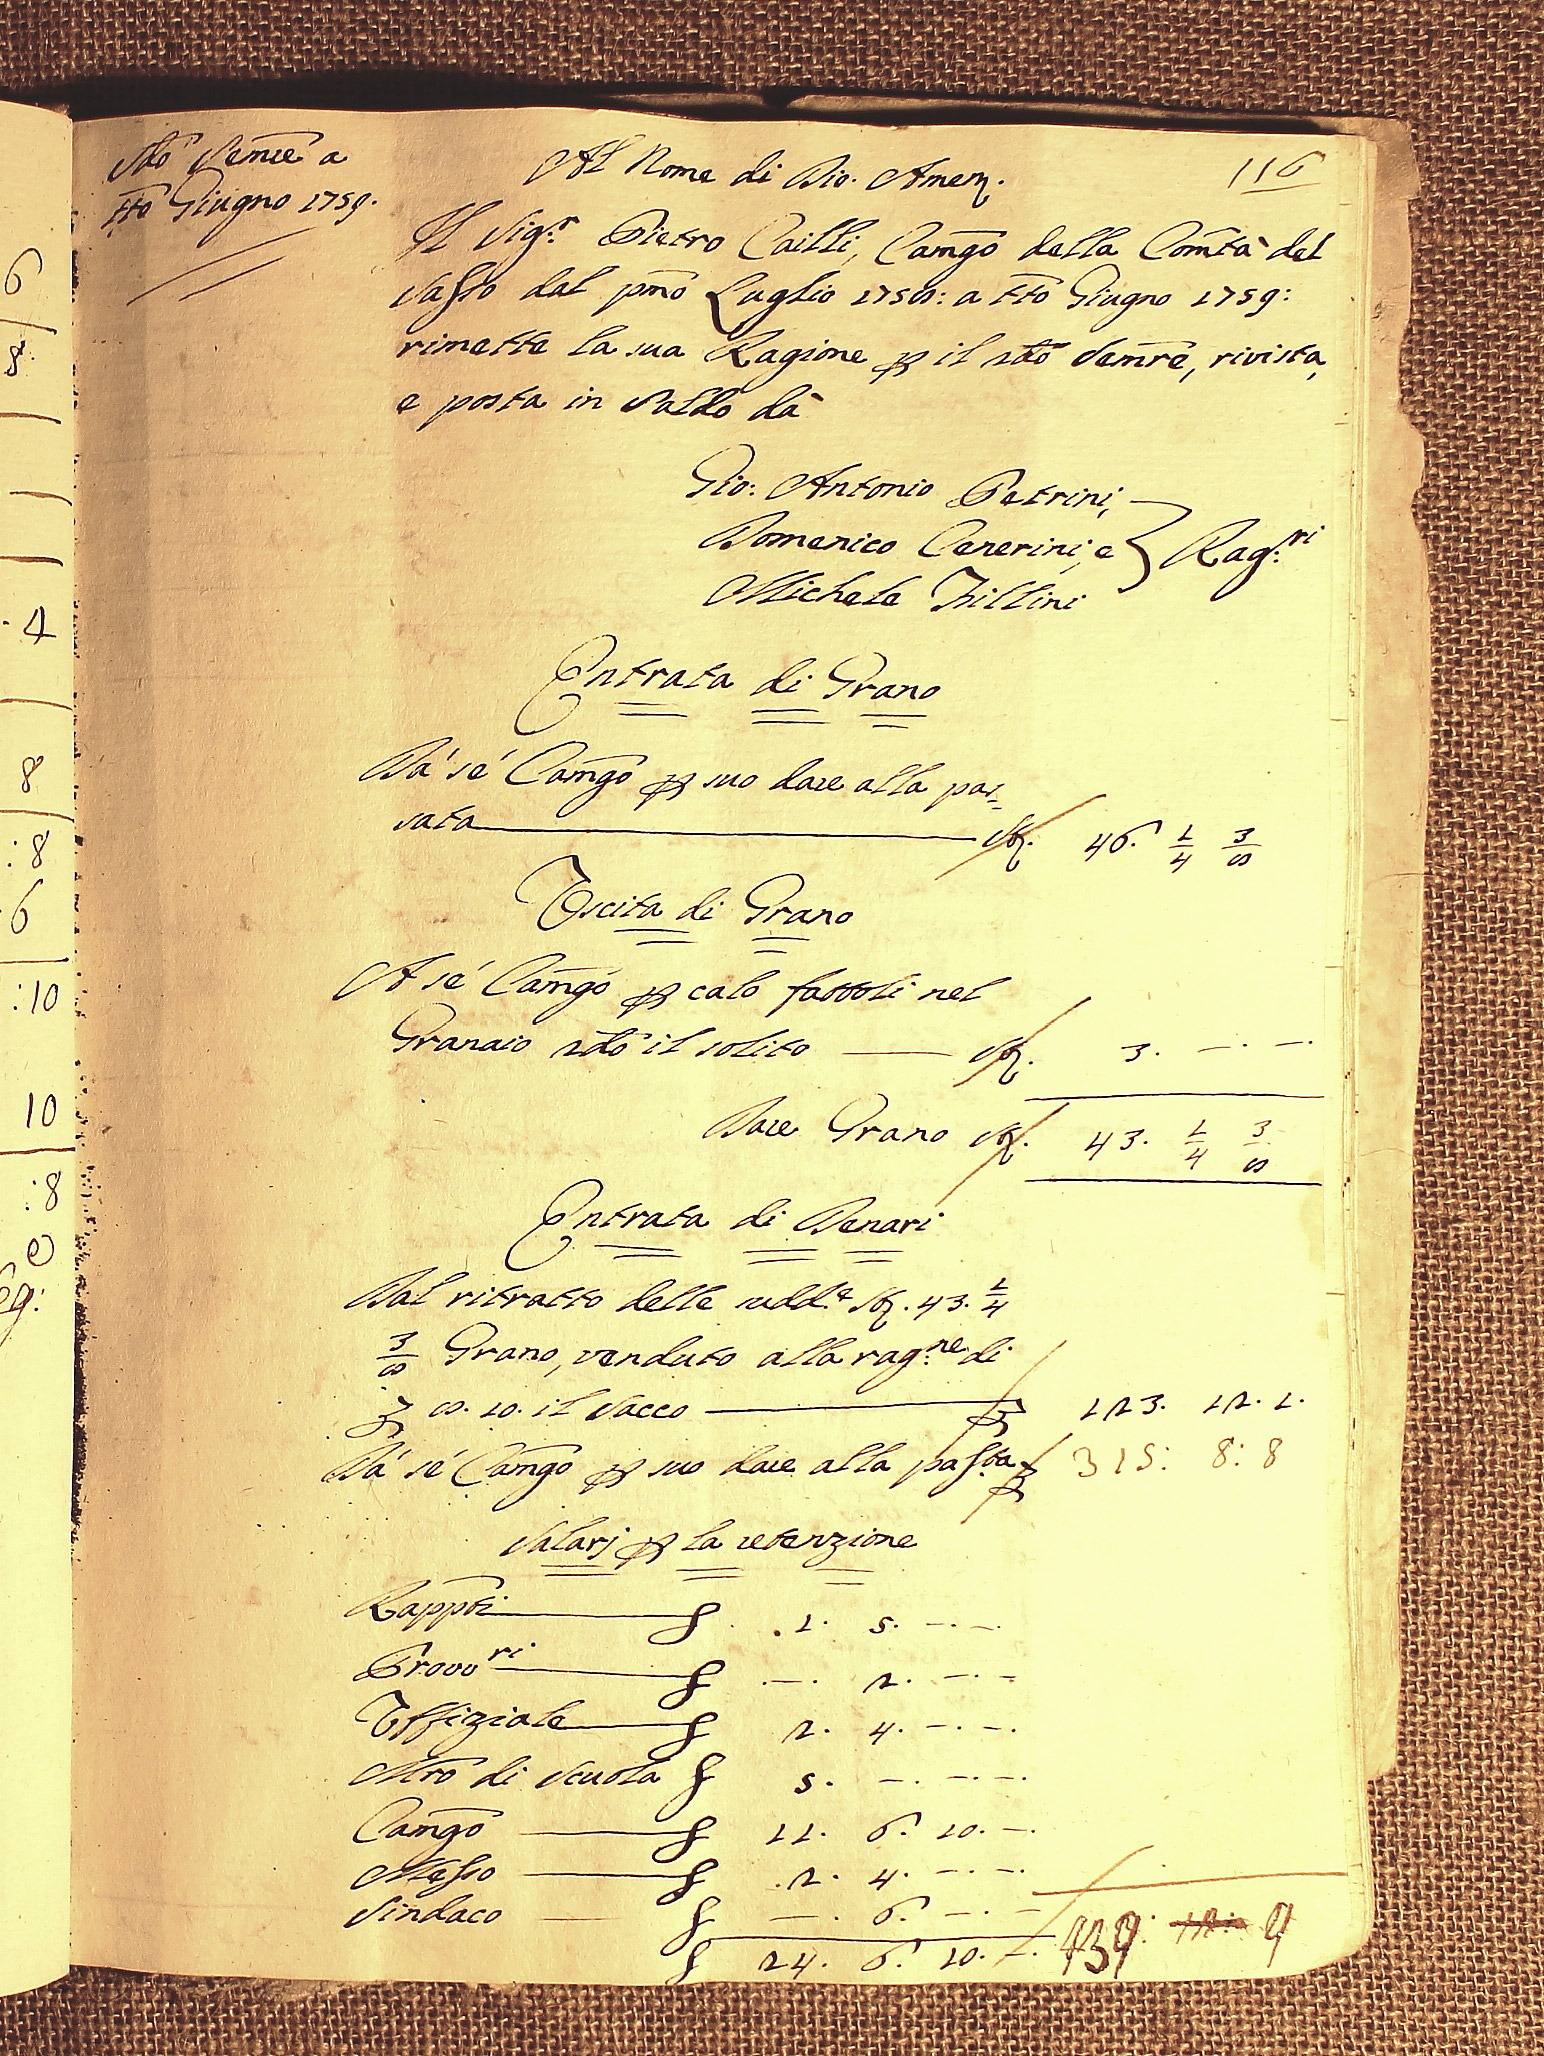 6
8
4
8
:8
6
:10
10
:8
e
eg:
sdo Semre a
tto Giugno 1759.
Al Nome di Dio. Amen.
116
Il Sig.r Pietro Cailli, Camgo della Comtà del
Sasso dal pmo Luglio 1758: a tto Giugno 1759:
rimette la sua Ragione p il sdo Semre, rivista,
e posta in Saldo dà
Gio: Antonio Petrini,
Domenico Cenerini, e Rag.ri
Michele Fillini
Entrata di Grano
Da' se' Camgo p suo dare alla pas=
sata St. 46. 1/4 3/8
Uscita di Grano
A se' Camgo p calo fattoli nel
Granaio sdo il solito St. 3. —. —.
Dare Grano St. 43. 1/4 3/8
Entrata di Denari
Dal ritratto delle sudd.e St. 43. 1/4
3/8 Grano, venduto alla rag.ne di
8. 10. il Sacco 123. 12. 1.
Da' se' Camgo p suo dare alla passta 315: 8: 8
Salarj p la retenzione
Rappti 1. 5. —. —.
Provv.ri —. 2. —. —
Uffiziale 2. 4. —. —.
Mro di Scuola 5. —. —. —.
Camgo 11. 6. 10. —.
Messo 2. 4. —. —.
Sindaco —. 6. —. —
24. 6. 10. —. 439: 9